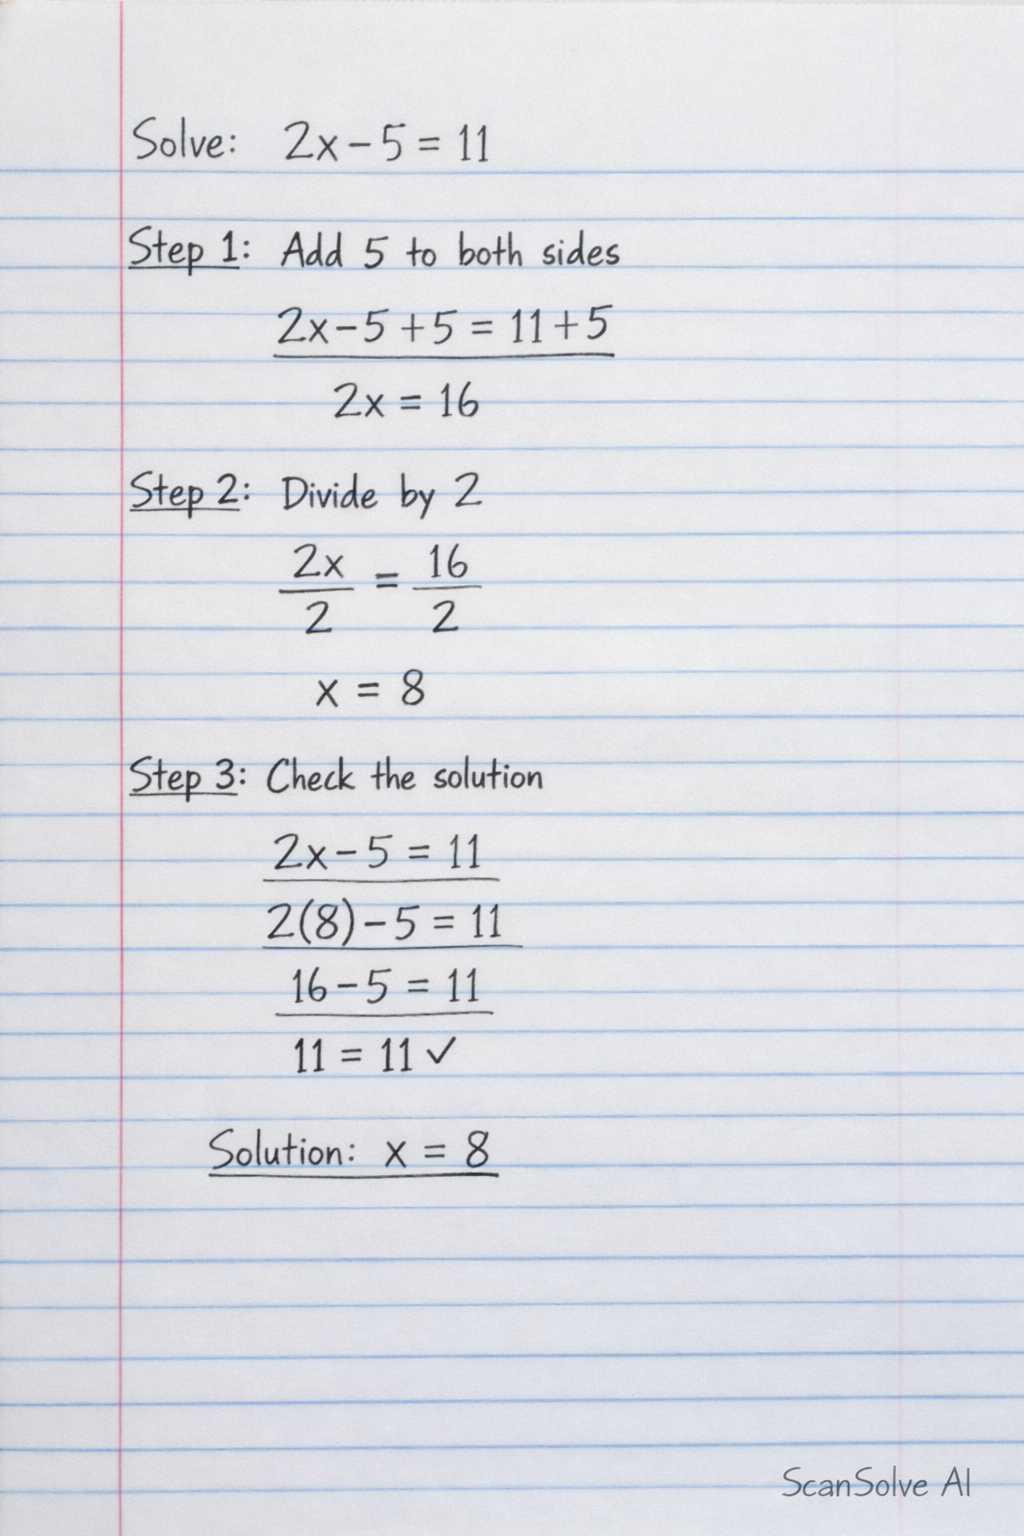 Solve: 2x - 5 = 11
Step 1: Add 5 to both sides
2x - 5 + 5 = 11 + 5
2x = 16
Step 2: Divide by 2
2x/2 = 16/2
x = 8
Step 3: Check the solution
2x - 5 = 11
2(8) - 5 = 11
16 - 5 = 11
11 = 11 ✓
Solution: x = 8
ScanSolve AI